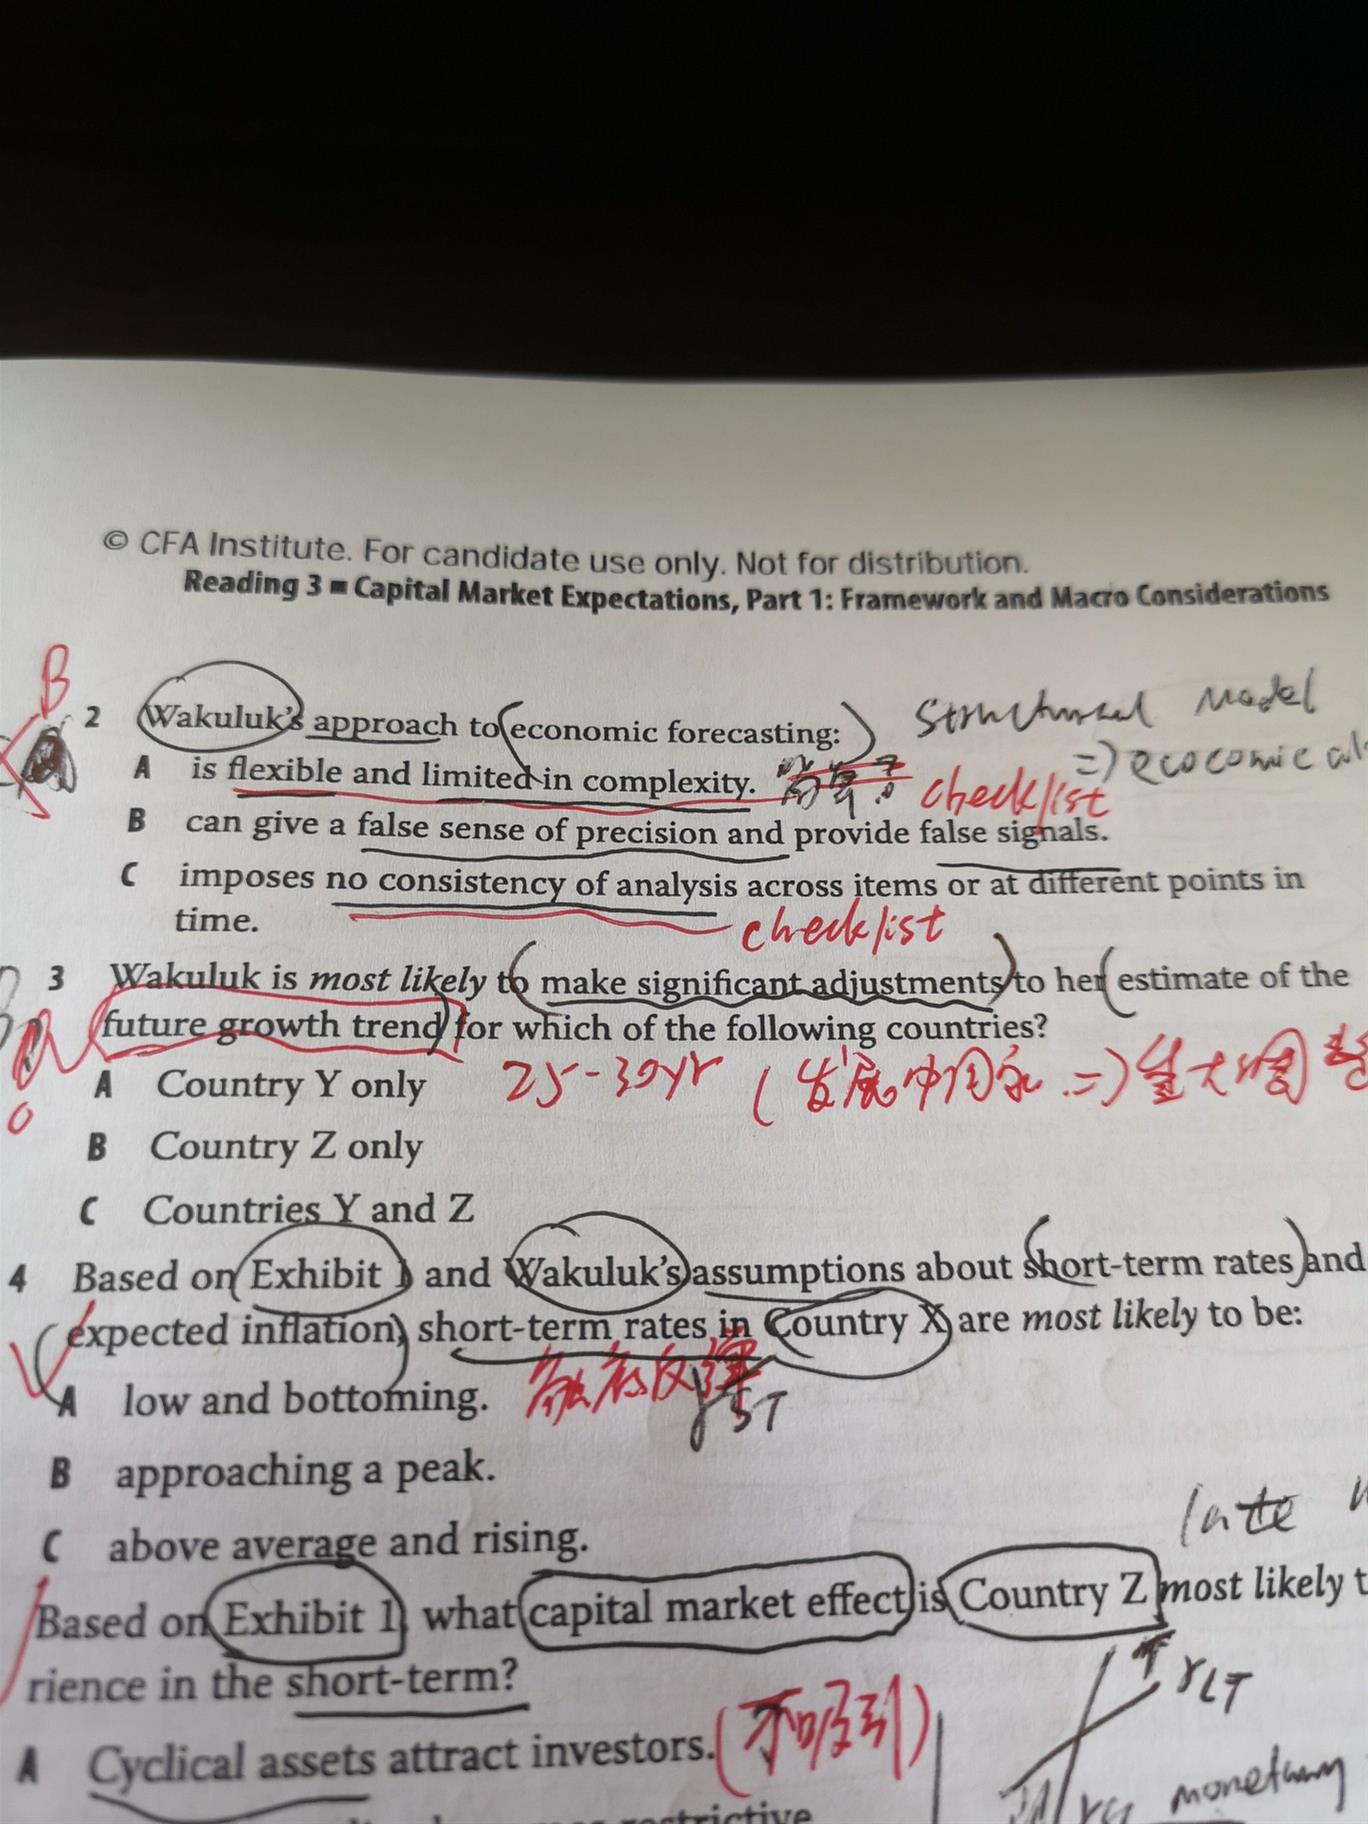 © CFA Institute. For candidate use only. Not for distribution.
Reading 3 ■ Capital Market Expectations, Part 1: Framework and Macro Considerations
B
2 Wakuluk's approach to economic forecasting:
Structural Model
A is flexible and limited in complexity.
checklist
B can give a false sense of precision and provide false signals.
C imposes no consistency of analysis across items or at different points in
time.
checklist
3 Wakuluk is most likely to make significant adjustments to her estimate of the
future growth trend for which of the following countries?
A Country Y only
25-30yr (发展中国家 =)
B Country Z only
C Countries Y and Z
4 Based on Exhibit 1 and Wakuluk's assumptions about short-term rates and
expected inflation, short-term rates in Country X are most likely to be:
A low and bottoming.
rST
B approaching a peak.
late
C above average and rising.
Based on Exhibit 1, what capital market effect is Country Z most likely t
rience in the short-term?
↑ rLT
A Cyclical assets attract investors.
(不吸引)
monetary
restrictive